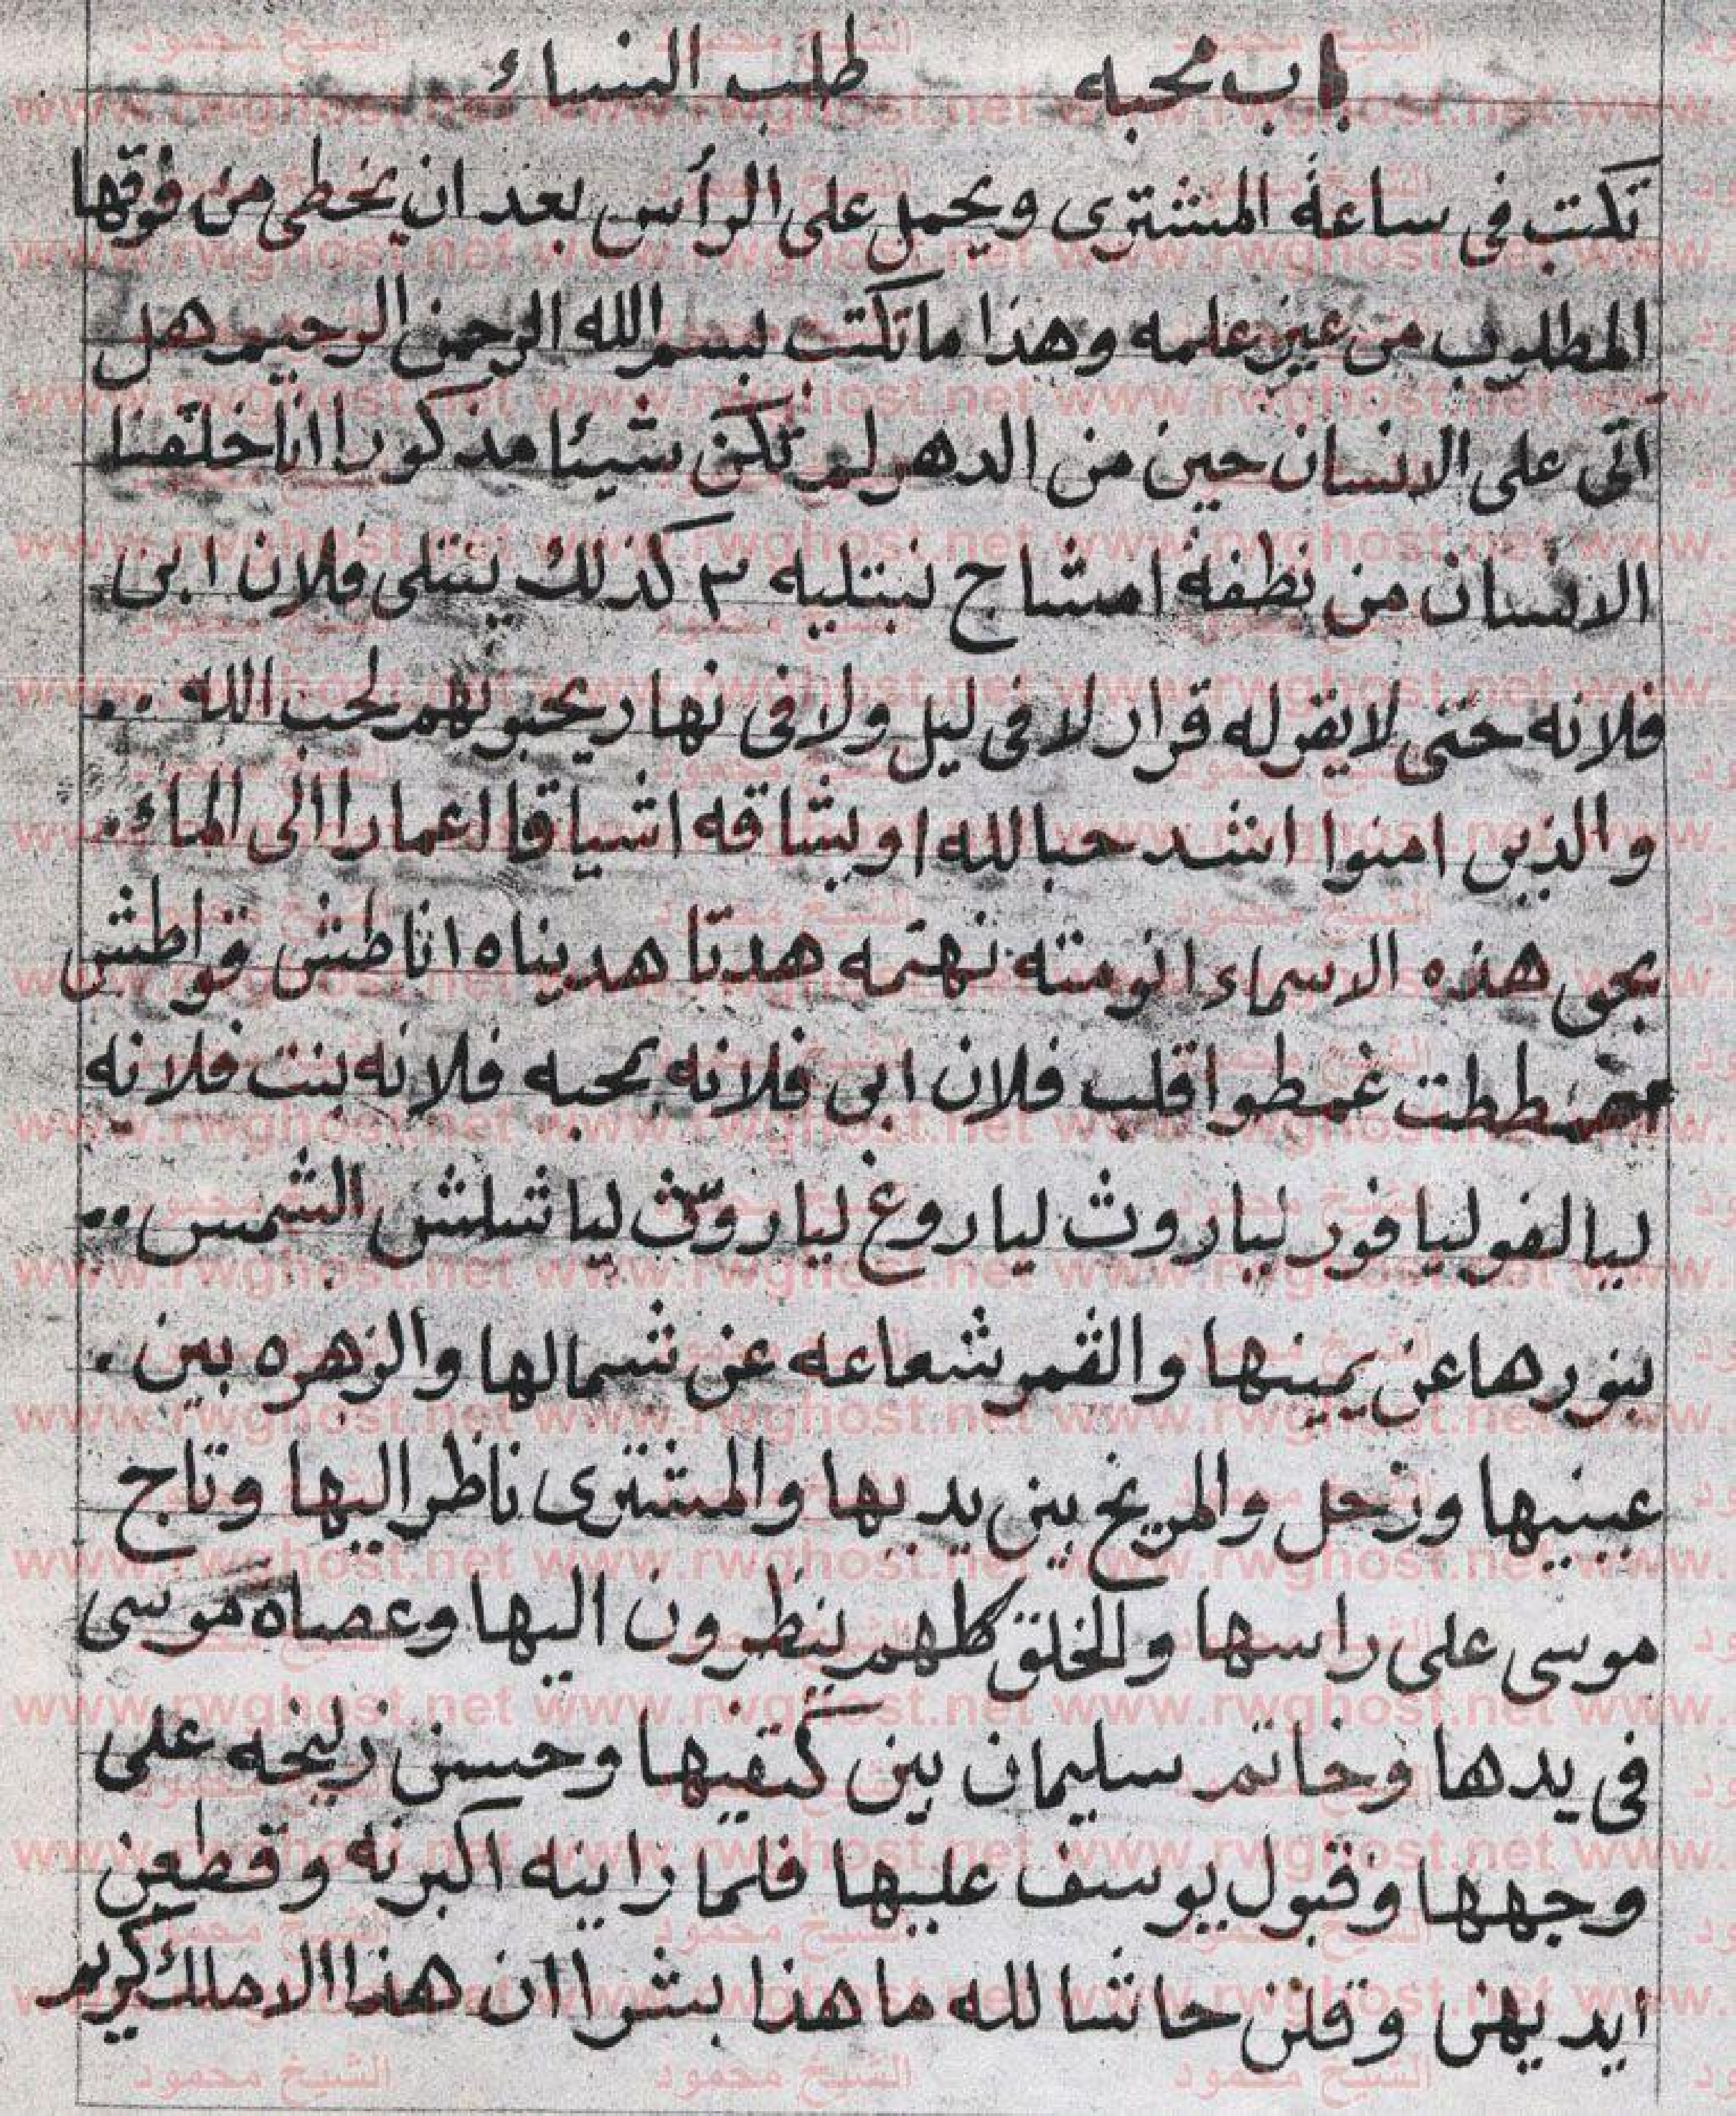 باب محبه طلب النساء
تكتب فى ساعة المشترى ويحمل على الرأس بعد ان يخطى من فوقها
المطلوب من غير علمه وهذا ما تكتب بسم الله الرحمن الرحيم هل
اتى على الانسان حين من الدهر لم تكن شيئا مذكورا انا خلقنا
الانسان من نطفة امشاج نبتليه ٣ كذلك يبتلى فلان ابن
فلانه حتى لا يقر له قرار لا فى ليل ولا فى نهار يحبونهم لحب الله ..
والذين امنوا اشد حبا لله او يشاقه اشياقا لعمارا الى الماء .
بحق هذه الاسماء نهته هدتا هديناه اناطش قواطش
غمطوا قلب فلان ابى فلانه بمحبه فلانه بنت فلانه
ليا الفو ليا فور ليا روث ليا روغ ليا روث ليا شلش الشمس ..
بنورها عن يمينها والقمر بشعاعه عن شمالها والزهره بين .
عينيها وزحل والمريخ بين يديها والمشترى ناظر اليها وتاج
موسى على راسها والخلق كلهم ينظرون اليها وعصاه موسى
فى يدها وخاتم سليمان بين كتفيها وحسن زليخه على
وجهها وقبول يوسف عليها فلما راينه اكبرنه وقطعن
ايديهن وقلن حاشا لله ما هذا بشرا ان هذا الا ملك كريم
الشيخ محمود
www.rwghost.net